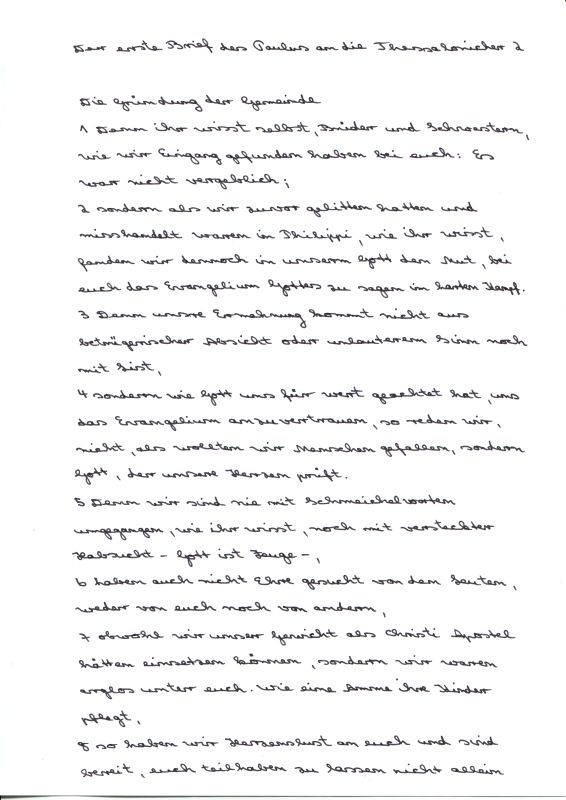 Der erste Brief des Paulus an die Thessalonicher 2
Die Gründung der Gemeinde
1 Denn ihr wisst selbst, Brüder und Schwestern,
wie wir Eingang gefunden haben bei euch: Es
war nicht vergeblich;
2 sondern als wir zuvor gelitten hatten und
misshandelt waren in Philippi, wie ihr wisst,
fanden wir dennoch in unserm Gott den Mut, bei
euch das Evangelium Gottes zu sagen im harten Kampf.
3 Denn unsre Ermahnung kommt nicht aus
betrügerischer Absicht oder unlauterem Sinn noch
mit List,
4 sondern wie Gott uns für wert geachtet hat, uns
das Evangelium anzuvertrauen, so reden wir,
nicht, als wollten wir Menschen gefallen, sondern
Gott, der unsere Herzen prüft.
5 Denn wir sind nie mit Schmeichelworten
umgegangen, wie ihr wisst, noch mit versteckter
Habsucht - Gott ist Zeuge -,
6 haben auch nicht Ehre gesucht von den Leuten,
weder von euch noch von andern,
7 obwohl wir unser Gewicht als Christi Apostel
hätten einsetzen können, sondern wir waren
arglos unter euch. Wie eine Amme ihre Kinder
pflegt,
8 so haben wir Herzenslust an euch und sind
bereit, euch teilhaben zu lassen nicht allein